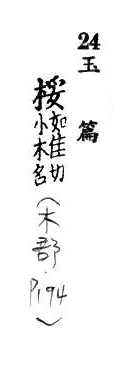 24
玉篇
桵
如隹切
小木名
(木部.P194)